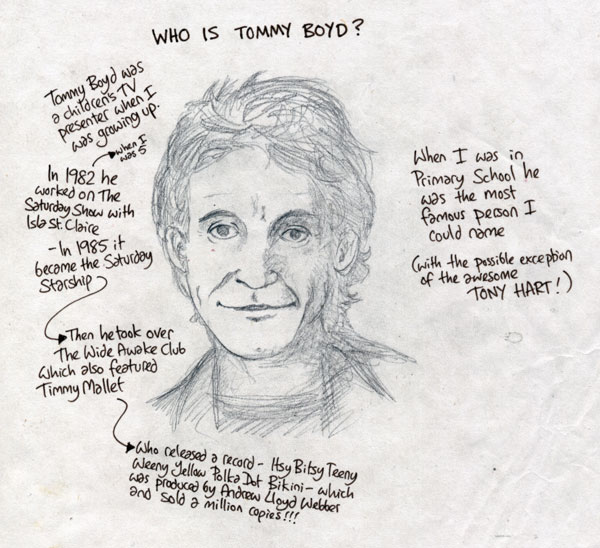 WHO IS TOMMY BOYD?
Tommy Boyd was
a children's TV
presenter when I
was growing up.
when I
was 5
In 1982 he
worked on The
Saturday Show with
Isla St. Claire
- In 1985 it
became the Saturday
Starship
Then he took over
The Wide Awake Club
which also featured
Timmy Mallet
Who released a record - Itsy Bitsy Teeny
Weeny Yellow Polka Dot Bikini - which
was produced by Andrew Lloyd Webber
and sold a million copies!!!
When I was in
Primary School he
was the most
famous person I
could name
(with the possible exception
of the awesome
TONY HART!)